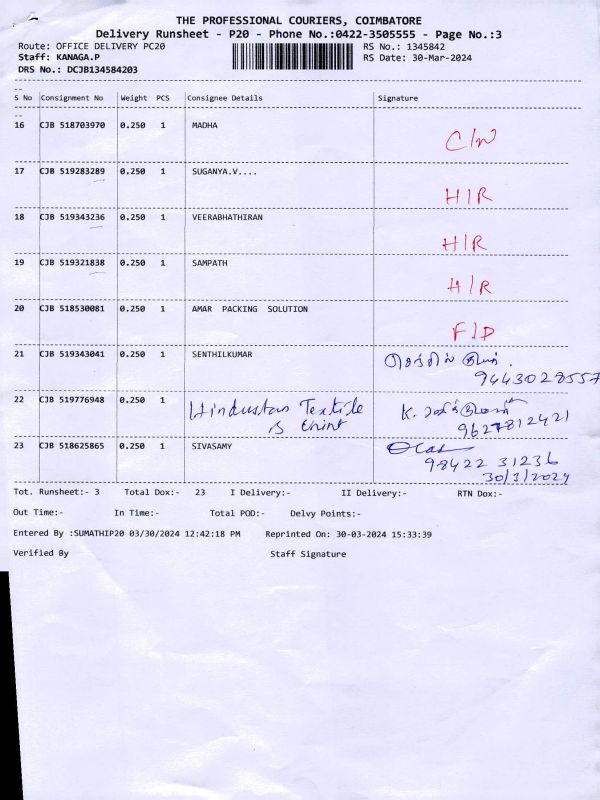 THE PROFESSIONAL COURIERS, COIMBATORE
Delivery Runsheet - P20 - Phone No.:0422-3505555 - Page No.:3
Route: OFFICE DELIVERY PC20 RS No.: 1345842
Staff: KANAGA.P RS Date: 30-Mar-2024
DRS No.: DCJB134584203
S No Consignment No Weight PCS Consignee Details Signature
16 CJB 518703970 0.250 1 MADHA C/N
17 CJB 519283289 0.250 1 SUGANYA.V.... H/R
18 CJB 519343236 0.250 1 VEERABHATHIRAN H/R
19 CJB 519321838 0.250 1 SAMPATH H/R
20 CJB 518530081 0.250 1 AMAR PACKING SOLUTION F/D
21 CJB 519343041 0.250 1 SENTHILKUMAR
9443028557
22 CJB 519776948 0.250 1 Hindustan Textile K.
9627812421
23 CJB 518625865 0.250 1 SIVASAMY
98422 31236
30/3/2024
Tot. Runsheet:- 3 Total Dox:- 23 I Delivery:- II Delivery:- RTN Dox:-
Out Time:- In Time:- Total POD:- Delvy Points:-
Entered By :SUMATHIP20 03/30/2024 12:42:18 PM Reprinted On: 30-03-2024 15:33:39
Verified By Staff Signature